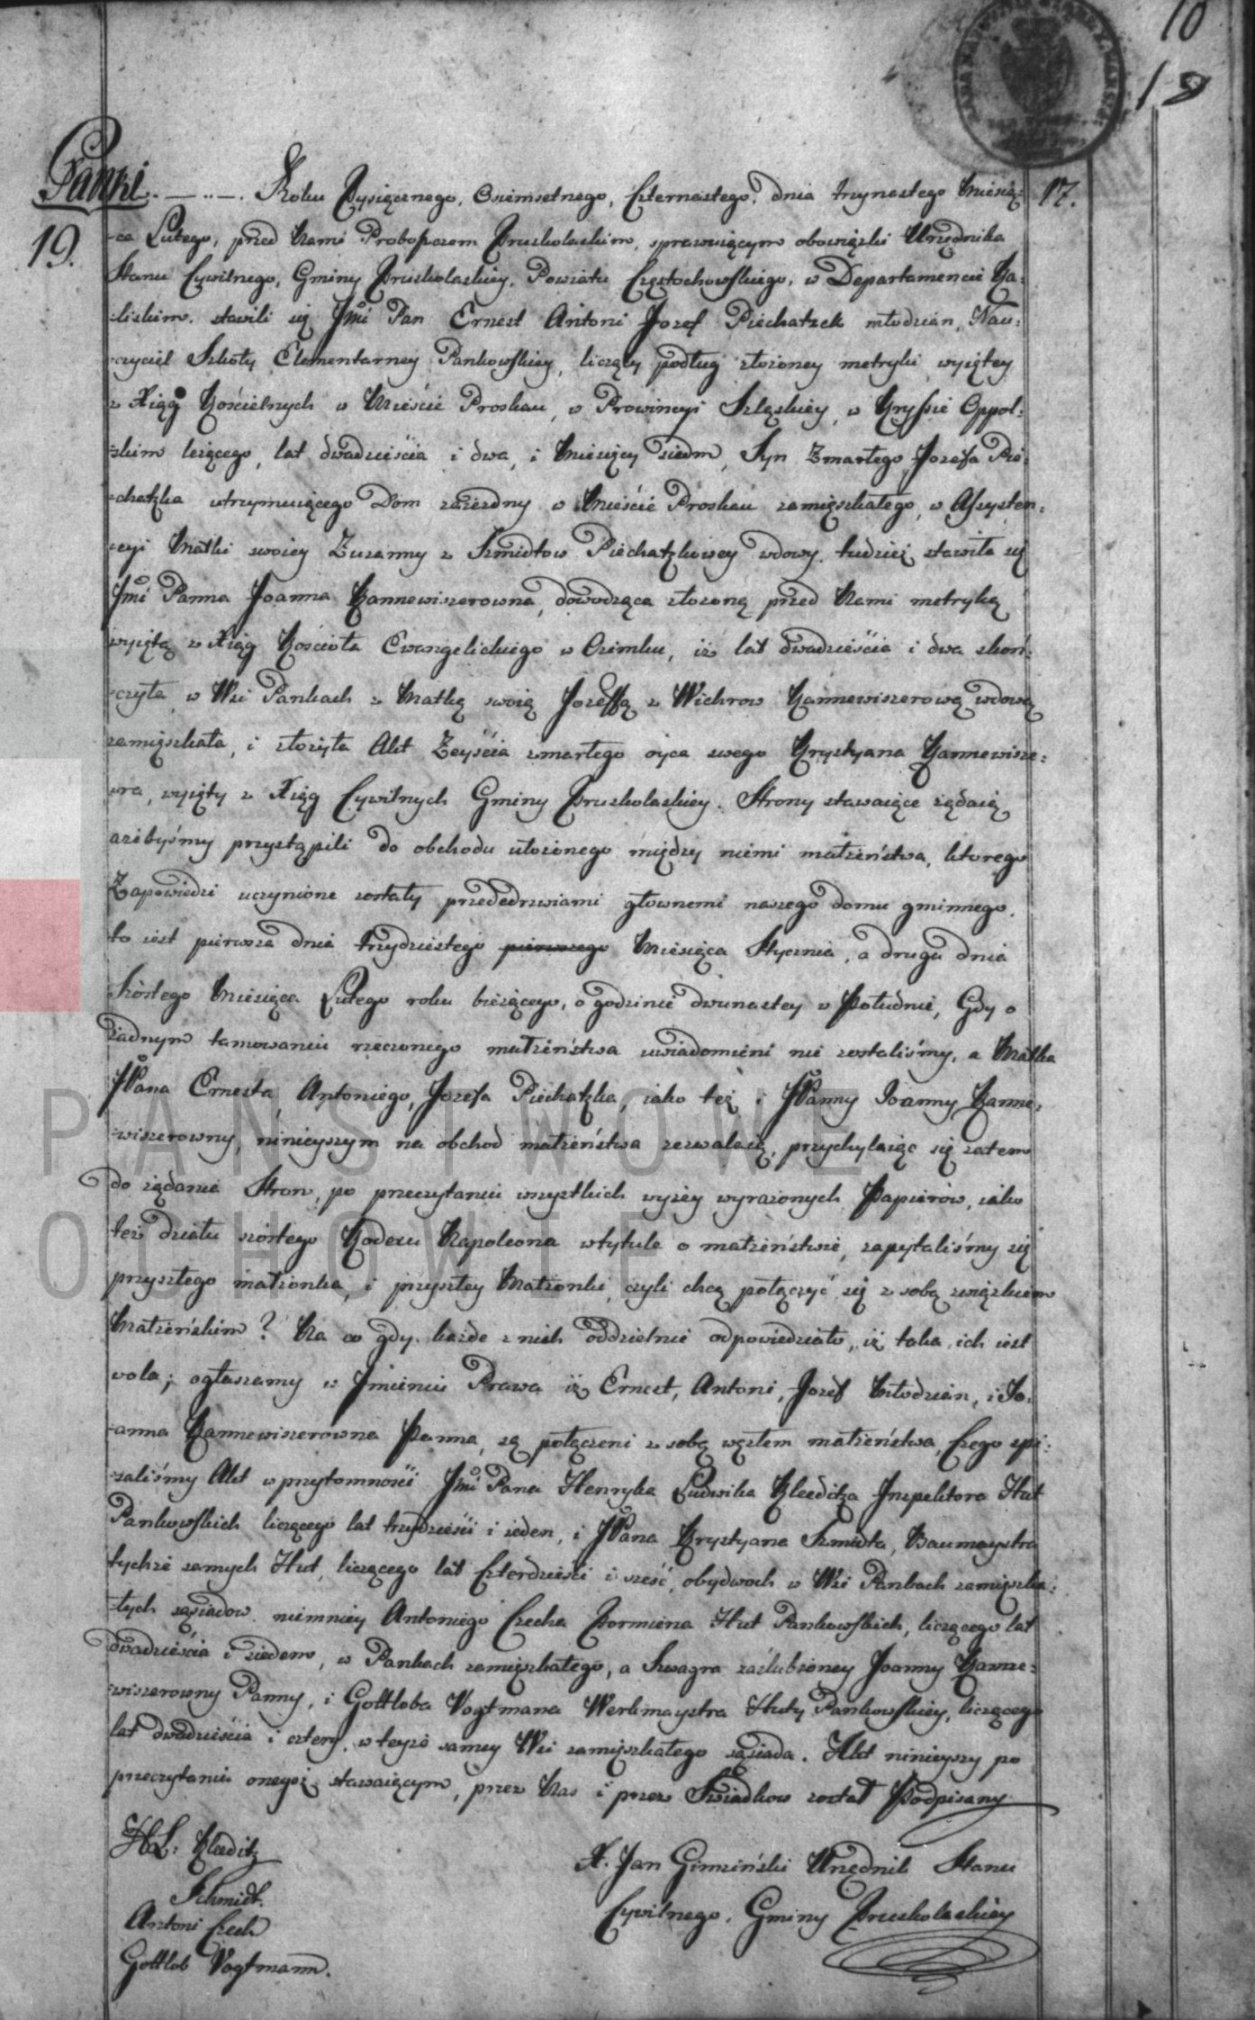 10
19
Panki
19.
17.
Roku Tysiącznego, Osiemsetnego, Czternastego, dnia trzynastego Miesią:
:ca Lutego, przed Nami Proboszczem Truskolaskim, sprawuiącym obowiązki Urzędnika
Stanu Cywilnego, Gminy Truskolaskiey, Powiatu Częstochowskiego, w Departamencie Ka:
:liskim, stawili się Jmć Pan Ernest Antoni Jozef Piechatzek młodzian, Nau:
:czyciel Szkoły Elementarney Pankowskiey, liczący podług złożoney metryki wyiętey
z Xiąg Kościelnych w Mieście Proskau, w Prowincyi Szląskiey, w Kryssie Oppol:
:skim leżącego, lat dwadzieścia i dwa, i Miesięcy siedm, Syn Zmarłego Jozefa Pie:
:chatzka utrzymuiącego Dom zaiezdny w Mieście Proskau zamięszkałego, w Assysten:
:cyi Matki swoiey Zuzanny z Szmidtow Piechatzkowey wdowy. tudzież stawiła się
Jmć Panna Joanna Hannewiszerowna, dowodząca złożoną przed Nami metryką
wyiętą z Xiąg Kościoła Ewangelickiego w Ozimku, iż lat dwadzieścia i dwa skoń:
:czyła, w Wsi Pankach z Matką swoią Jozeffą z Wichrow Hannewiszerową wdową
zamięszkała, i złożyła Akt Zeyścia zmarłego oyca swego Krystyana Hannewisze:
:ra, wyięty z Xiąg Cywilnych Gminy Truskolaskiey. Strony stawaiące żądaią
ażebyśmy przystąpili do obchodu ułożonego między niemi małżeństwa, ktorego
Zapowiedzi uczynione zostały przededrzwiami głownemi naszego domu gminnego.
to iest pierwsza dnia trzydziestego pierwszego Miesiąca Stycznia, a druga dnia
szóstego Miesiąca Lutego roku bieżącego, o godzinie dwunastey w Południe, Gdy o
żadnym tamowaniu rzeczonego małżeństwa uwiadomieni nie zostaliśmy, a Matka
JPana Ernesta, Antoniego, Jozefa Piechatzka, iako też i JPanny Joanny Hanne:
:wiszerowny, ninieyszym na obchod małżeństwa zezwalaią, przychylaiąc się zatem
do żądania Stron, po przeczytaniu wszystkich wyżey wyrażonych Papierów, iako
też działu szóstego Kodexu Napoleona w tytule o małżeństwie, zapytaliśmy się
przyszłego małżonka, i przyszłey Małżonki, czyli chcą połączyć się z sobą związkiem
Małżeńskim? Na co gdy każde z nich oddzielnie odpowiedziało, iż taka ich iest
wola; ogłaszamy w Jmieniu Prawa iż Ernest, Antoni, Jozef Młodzian, i Jo:
:anna Hannewiszerowna Panna, są połączeni z sobą węzłem małżeństwa. Czego spi:
:saliśmy Akt w przytomności Jmć Pana Henryka Ludwika Kleeditza Jnspektora Hut
Pankowskich liczącego lat trzydzieści i ieden, i JPana Krystyana Szmidta, Baumaystra
tychże samych Hut, liczącego lat Czterdzieści i sześć, obydwoch w Wsi Pankach zamięszka:
:łych sąsiadow. niemniey Antoniego Czecha Formiera Hut Pankowskich, liczącego lat
dwadzieścia i siedem, w Pankach zamięszkałego, a Szwagra zaślubioney Joanny Hanne:
:wiszerowny Panny, i Gottloba Vogtmana Werkmaystra Huty Pankowskiey, liczącego
lat dwadzieścia i cztery, w teyże samey Wsi zamięszkałego sąsiada. Akt ninieyszy po
przeczytaniu onegoż stawaiącym, przez Nas i przez Swiadkow został Podpisany
HL: Kleeditz
Schmidt.
Antoni Czech
Gottlob Vogtmann.
X. Jan Gimziński Urzędnik Stanu
Cywilnego, Gminy Truskolaskiey
PAŃSTWOWE